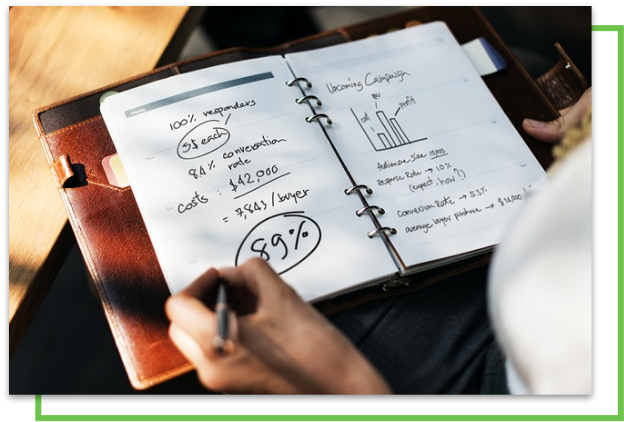 100% responders
5$ each
84% conversation
rate
costs : $42,000
= 7,843 /buyer
89%
Upcoming Campaign
cost
rev
profit
Audience size 10,000
Response Rate → 10%
(expect, how?)
conversion Rate → 53%
average buyer purchase →